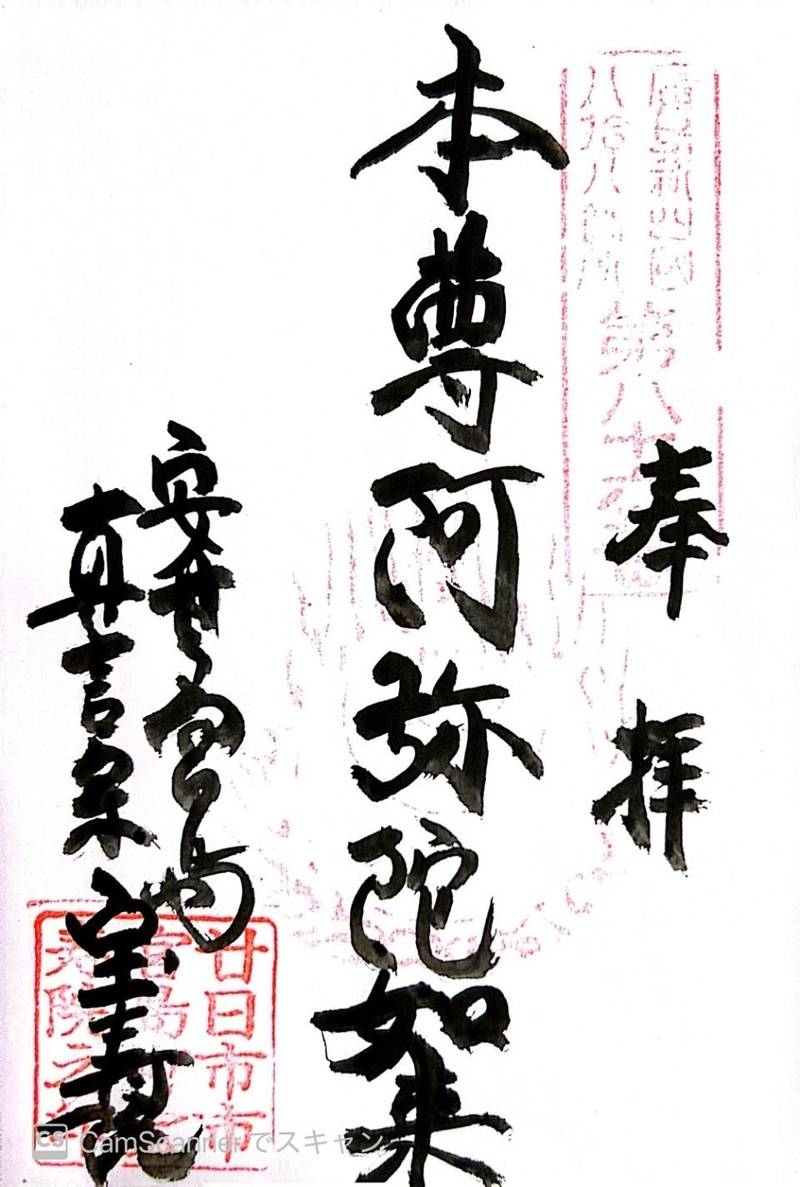 奉拝
廣島新四国
八拾八ヶ所
第八十
本尊阿弥陀如来
安芸宮島
真言宗 宝寿院
廿日市市
宮島
寿院之
CS CamScannerでスキャン